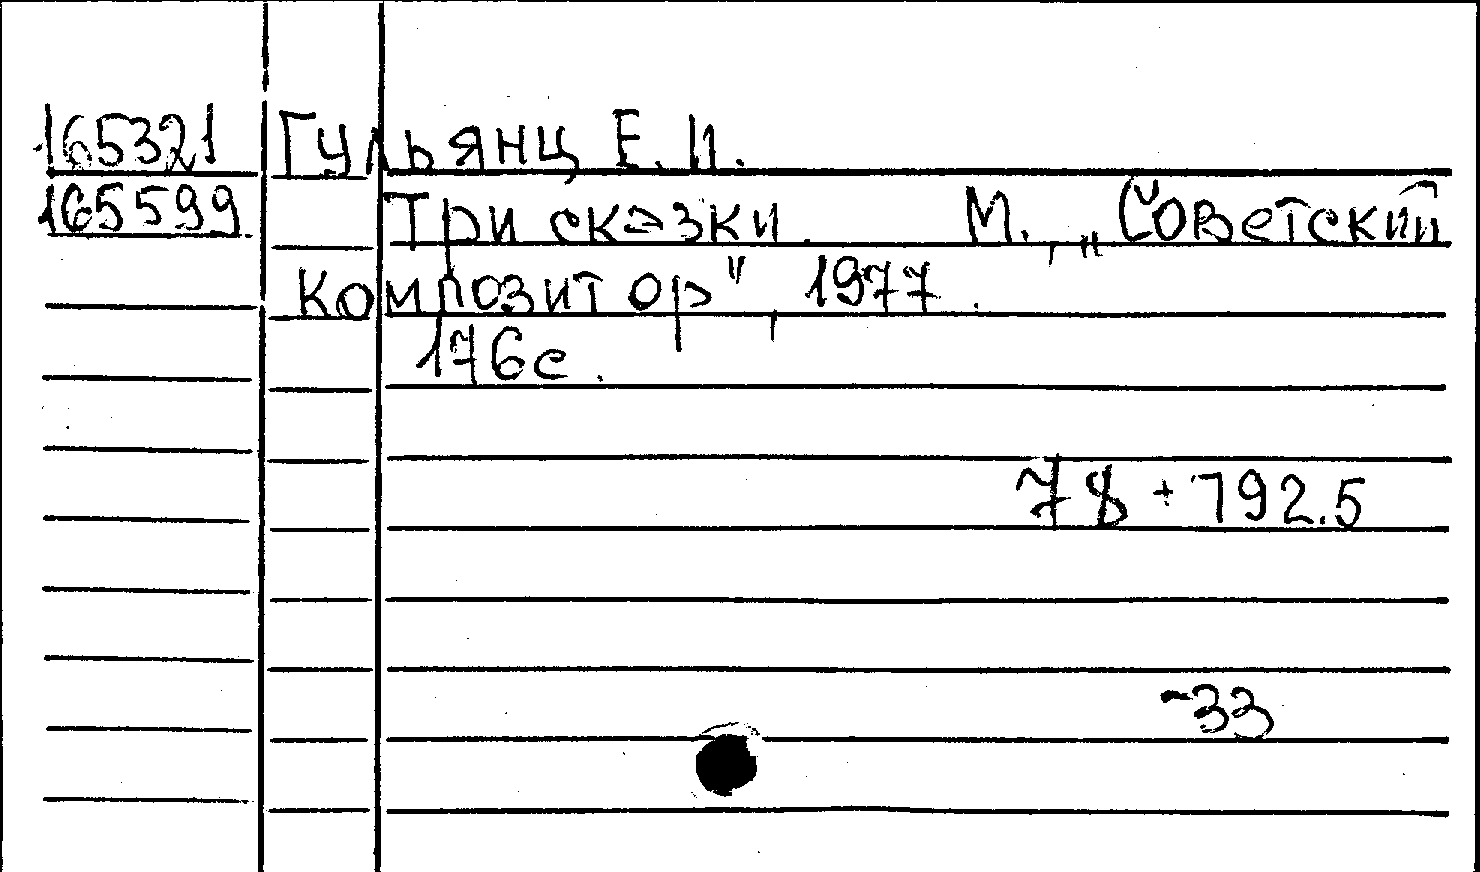 165321 Гульянц Е.И.
165599 Три сказки. М., „Советский
композитор", 1977.
176с.
78 + 792.5
-33